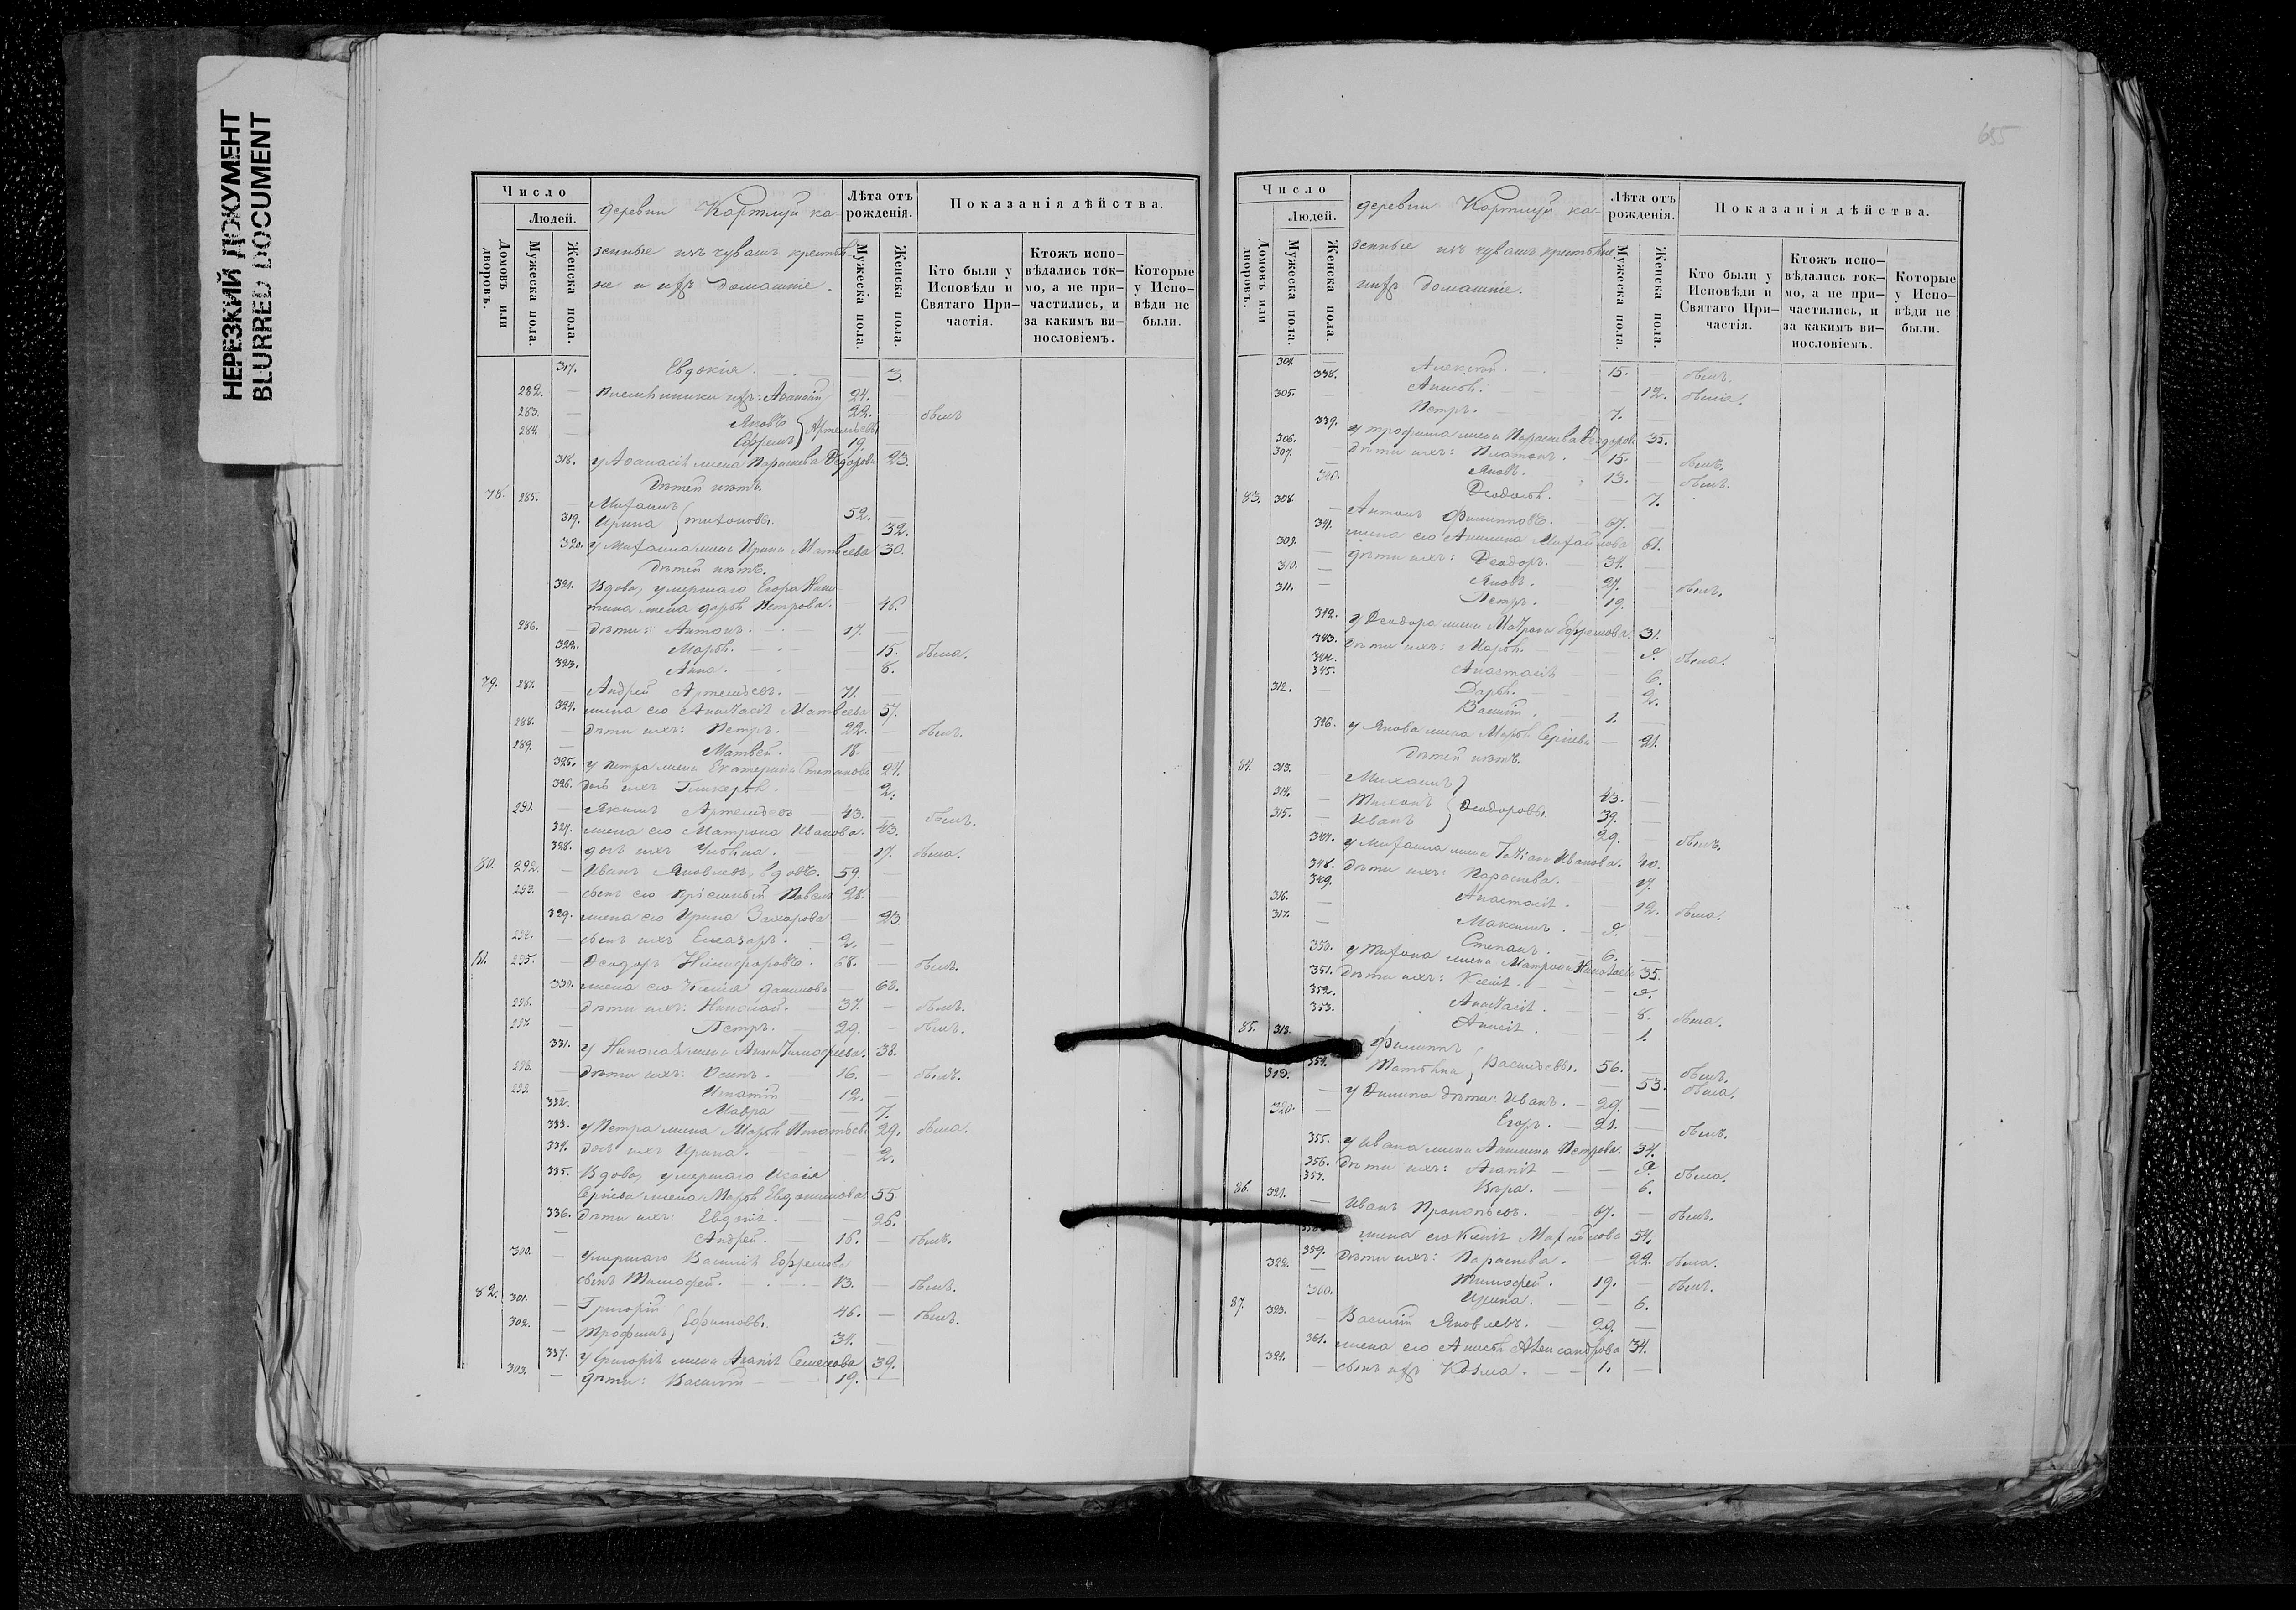 НЕРЕЗКИЙ ДОКУМЕНТ
BLURRED DOCUMENT
Число
Людей.
Домовъ или дворовъ.
Мужеска пола.
Женска пола.
деревни ка-
зенные изъ чувашъ крестья-
не и ихъ домашніе.
Лѣта отъ рожденія.
Мужеска пола.
Женска пола.
Показанія дѣйства.
Кто были у Исповѣди и Святаго При-частія.
Ктожъ испо-вѣдались ток-мо, а не при-частились, и за какимъ ви-нословіемъ.
Которые у Испо-вѣди не были.
317. Евдокія. 3.
282. — Племянники ихъ: Аѳанасій 24. —
283. — Яковъ 22. — былъ
284. — Ефремъ Артемьевы 19. —
318. у Аѳанасія жена Параскева Ѳедорова 23.
дѣтей нѣтъ.
78. 285. — Михаилъ 52. —
319. Ирина Тихоновы. — 32.
320. у Михаила жена Ирина Матвеева 30.
дѣтей нѣтъ.
321. Вдова, умершаго Егора Ники-
тина жена Дарья Петрова. — 46.
286. — дѣти: Антонъ. 17. —
322. Марья. — 15. была.
323. Анна. 8.
79. 287. — Андрей Артемьевъ. 71. —
324. жена его Анастасія Матвеева 57.
288. — дѣти ихъ: Петръ. 22. — былъ.
289. — Матвей. 18. —
325. у Петра жена Екатерина Степанова 24.
326. дочь ихъ Гликерья. — 2.
291. — Якимъ Артемьевъ 43. — былъ.
327. жена его Матрона Иванова. 43.
328. дочь ихъ Ульяна. — 17. была.
80. 292. — Иванъ Яковлевъ, вдовъ. 59. —
293. — сынъ его пріемный Павелъ 28. —
329. жена его Ирина Захарова — 23.
294. — сынъ ихъ Елеазаръ. 2. —
81. 295. — Ѳеодоръ Никифоровъ. 68. — былъ.
330. жена его Ксенія Данилова — 68.
296. — дѣти ихъ: Николай. 37. — былъ.
297. — Петръ. 29. — былъ.
331. у Николая жена Анна Тимофеева. 38.
298. — дѣти ихъ: Осипъ. 16. — былъ.
299. — Игнатій 12. —
332. Мавра — 7.
333. у Петра жена Марья Игнатьева 29. была.
334. дочь ихъ Ирина. — 2.
335. Вдова, умершаго Исаія
Сергіева жена Марья Евдокимова 55
336. дѣти ихъ: Евдокія. — 26.
— Андрей. 16. — былъ.
300. — Умершаго Василія Ефремова
сынъ Тимофей. 13. — былъ.
82. 301. — Григорій 46. — былъ.
302. — Трофимъ Ефимовы. 34. —
337. у Григорія жена Агапія Семенова 39.
303. — дѣти: Василій 19. —
655
Число
Людей.
Домовъ или дворовъ.
Мужеска пола.
Женска пола.
деревни ка-
зенные изъ чувашъ крестьяне
и ихъ домашніе.
Лѣта отъ рожденія.
Мужеска пола.
Женска пола.
Показанія дѣйства.
Кто были у Исповѣди и Святаго При-частія.
Ктожъ испо-вѣдались ток-мо, а не при-частились, и за какимъ ви-нословіемъ.
Которые у Испо-вѣди не были.
304. — Алексей. 15. былъ.
338. Анисья. 12. была.
305. — Петръ. 7.
339. у Трофима жена Параскева Ѳеодорова 35.
306. — дѣти ихъ: Платонъ. 15. — былъ.
307. — Яковъ. 13. — былъ.
340. Ѳеодосія. — 7.
83. 308. — Антонъ Филипповъ. 67. —
341. жена его Акилина Михайлова 61.
309. — дѣти ихъ: Ѳеодоръ. 31. —
310. — Яковъ. 27. — былъ.
311. — Петръ. 19. —
342. у Ѳеодора жена Матрона Ефремова. 31.
343. дѣти ихъ: Марья. 9. была.
344. Анастасія — 6.
345. Дарья. — 2.
312. — Василій. 1. —
346. у Якова жена Марья Сергіева — 21.
дѣтей нѣтъ.
84. 313. — Михаилъ 43. —
314. — Тихонъ Ѳеодоровы. 39. —
315. — Иванъ 29. — былъ.
347. у Михаила жена Татіана Иванова. 40.
348. дѣти ихъ: Параскева. — 17.
349. Анастасія. — 12. была.
316. — Максимъ. 9. —
317. — Степанъ. 6. —
350. у Тихона жена Матрона 35.
351. дѣти ихъ: Ксенія. — 9.
352. Анастасія. — 8. была.
353. Анисія. — 1.
85. 318. — Филиппъ 56. — былъ.
354. Татьяна Васильевы. — 53. была.
319. — у Филипа дѣти: Иванъ. 29. —
320. — Егоръ. 21. — былъ.
355. у Ивана жена Акилина Петрова. 34.
356. дѣти ихъ: Агапія — 9. была.
357. Вѣра. — 6.
86. 321. — Иванъ Прокопьевъ. 67. — былъ.
358. жена его Ксенія Михайлова 54.
359. дѣти ихъ: Параскева. — 22. была.
322. — Тимофей. 19. — былъ.
360. Ирина. — 6.
87. 323. — Василій Яковлевъ. 29. —
361. жена его Анисья Александрова 34.
324. — сынъ ихъ Козма. 1. —